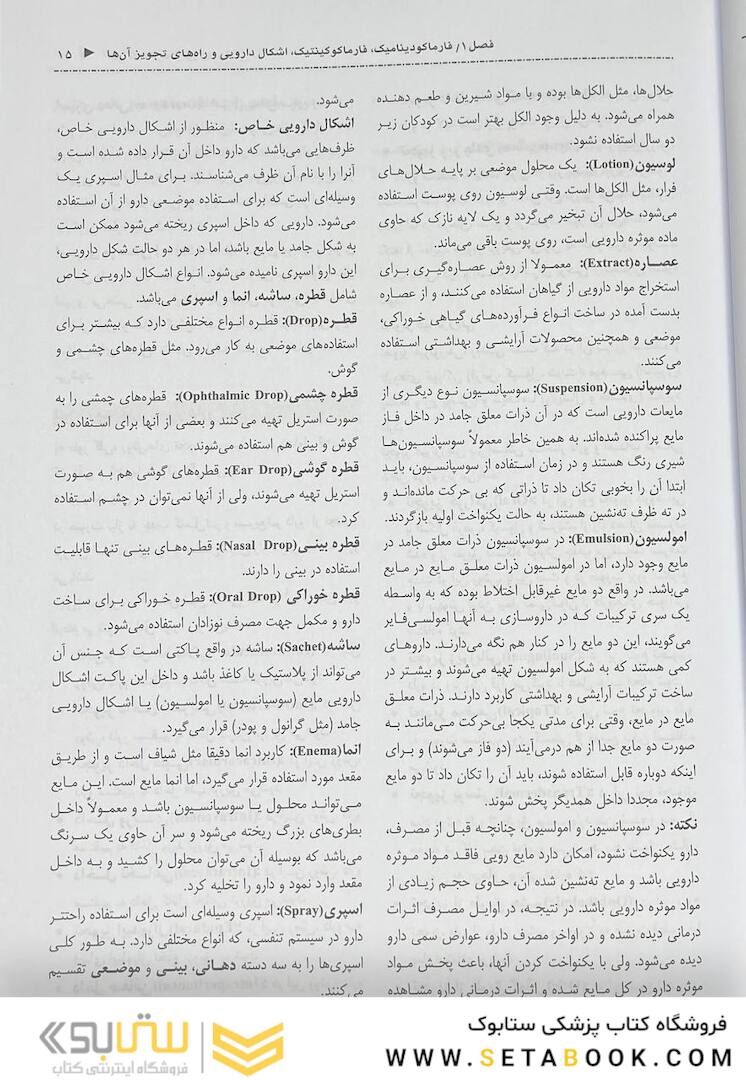 فصل ۱/ فارماکودینامیک، فارماکوکینتیک، اشکال دارویی و راه‌های تجویز آن‌ها ◄ ۱۵
حلال‌ها، مثل الکل‌ها بوده و با مواد شیرین و طعم دهنده
همراه می‌شود. به دلیل وجود الکل بهتر است در کودکان زیر
دو سال استفاده نشود.
لوسیون(Lotion): یک محلول موضعی بر پایه حلال‌های
فرار، مثل الکل‌ها است. وقتی لوسیون روی پوست استفاده
می‌شود، حلال آن تبخیر می‌گردد و یک لایه نازک که حاوی
ماده موثره دارویی است، روی پوست باقی می‌ماند.
عصاره(Extract): معمولا از روش عصاره‌گیری برای
استخراج مواد دارویی از گیاهان استفاده می‌کنند، و از عصاره
بدست آمده در ساخت انواع فرآورده‌های گیاهی خوراکی،
موضعی و همچنین محصولات آرایشی و بهداشتی استفاده
می‌کنند.
سوسپانسیون(Suspension): سوسپانسیون نوع دیگری از
مایعات دارویی است که در آن ذرات معلق جامد در داخل فاز
مایع پراکنده شده‌اند. به همین خاطر معمولاً سوسپانسیون‌ها
شیری رنگ هستند و در زمان استفاده از سوسپانسیون، باید
ابتدا آن را بخوبی تکان داد تا ذراتی که بی حرکت مانده‌اند و
در ته ظرف ته‌نشین هستند، به حالت یکنواخت اولیه بازگردند.
امولسیون(Emulsion): در سوسپانسیون ذرات معلق جامد در
مایع وجود دارد، اما در امولسیون ذرات معلق مایع در مایع
می‌باشد. در واقع دو مایع غیرقابل اختلاط بوده که به واسطه
یک سری ترکیبات که در داروسازی به آنها امولسی‌فایر
می‌گویند، این دو مایع را در کنار هم نگه می‌دارند. داروهای
کمی هستند که به شکل امولسیون تهیه می‌شوند و بیشتر در
ساخت ترکیبات آرایشی و بهداشتی کاربرد دارند. ذرات معلق
مایع در مایع، وقتی برای مدتی یکجا بی‌حرکت می‌مانند به
صورت دو مایع جدا از هم درمی‌آیند (دو فاز می‌شوند) و برای
اینکه دوباره قابل استفاده شوند، باید آن را تکان داد تا دو مایع
موجود، مجددا داخل همدیگر پخش شوند.
نکته: در سوسپانسیون و امولسیون، چنانچه قبل از مصرف،
دارو یکنواخت نشود، امکان دارد مایع رویی فاقد مواد موثره
دارویی باشد و مایع ته‌نشین شده آن، حاوی حجم زیادی از
مواد موثره دارویی باشد. در نتیجه، در اوایل مصرف اثرات
درمانی دیده نشده و در اواخر مصرف دارو، عوارض سمی دارو
دیده می‌شود. ولی با یکنواخت کردن آنها، باعث پخش مواد
موثره دارو در کل مایع شده و اثرات درمانی دارو مشاهده
می‌شود.
اشکال دارویی خاص: منظور از اشکال دارویی خاص،
ظرف‌هایی می‌باشد که دارو داخل آن قرار داده شده است و
آنرا با نام آن ظرف می‌شناسند. برای مثال اسپری یک
وسیله‌ای است که برای استفاده موضعی دارو از آن استفاده
می‌شود. دارویی که داخل اسپری ریخته می‌شود ممکن است
به شکل جامد یا مایع باشد، اما در هر دو حالت شکل دارویی،
این دارو اسپری نامیده می‌شود. انواع اشکال دارویی خاص
شامل قطره، ساشه، انما و اسپری می‌باشد.
قطره(Drop): قطره انواع مختلفی دارد که بیشتر برای
استفاده‌های موضعی به کار می‌رود. مثل قطره‌های چشمی و
گوش.
قطره چشمی(Ophthalmic Drop): قطره‌های چمشی را به
صورت استریل تهیه می‌کنند و بعضی از آنها برای استفاده در
گوش و بینی هم استفاده می‌شوند.
قطره گوشی(Ear Drop): قطره‌های گوشی هم به صورت
استریل تهیه می‌شوند، ولی از آنها نمی‌توان در چشم استفاده
کرد.
قطره بینی(Nasal Drop): قطره‌های بینی تنها قابلیت
استفاده در بینی را دارند.
قطره خوراکی (Oral Drop): قطره خوراکی برای ساخت
دارو و مکمل جهت مصرف نوزادان استفاده می‌شود.
ساشه(Sachet): ساشه در واقع پاکتی است که جنس آن
می‌تواند از پلاستیک یا کاغذ باشد و داخل این پاکت اشکال
دارویی مایع (سوسپانسیون یا امولسیون) یا اشکال دارویی
جامد (مثل گرانول و پودر) قرار می‌گیرد.
انما(Enema): کاربرد انما دقیقا مثل شیاف است و از طریق
مقعد مورد استفاده قرار می‌گیرد، اما انما مایع است. این مایع
می‌تواند محلول یا سوسپانسیون باشد و معمولاً داخل
بطری‌های بزرگ ریخته می‌شود و سر آن حاوی یک سرنگ
می‌باشد که بوسیله آن می‌توان محلول را کشید و به داخل
مقعد وارد نمود و دارو را تخلیه کرد.
اسپری(Spray): اسپری وسیله‌ای است برای استفاده راحتتر
دارو در سیستم تنفسی، که انواع مختلفی دارد. به طور کلی
اسپری‌ها را به سه دسته دهانی، بینی و موضعی تقسیم
می‌کنند.
فروشگاه کتاب پزشکی ستابوک
WWW.SETABOOK.COM
ستابوک
فروشگاه اینترنتی کتاب